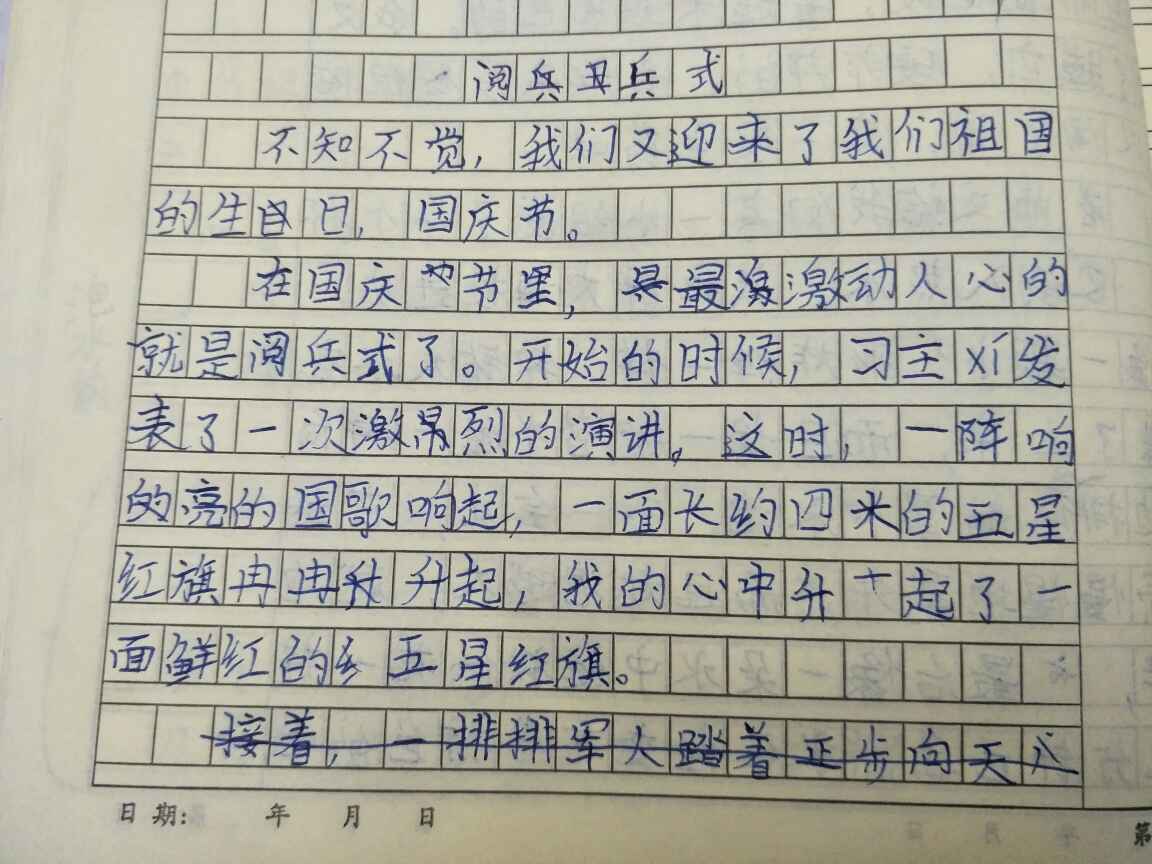 阅兵丑兵式
不知不觉,我们又迎来了我们祖国
的生自日,国庆节。
在国庆节里,最激激动人心的
就是阅兵式了。开始的时候,习主发
表了一次激昂烈的演讲。这时,一阵响
的亮的国歌响起,一面长约四米的五星
红旗冉冉升升起,我的心中升十起了一
面鲜红的五星红旗。
接着,一排排军人踏着正步向天
日期: 年 月 日
第